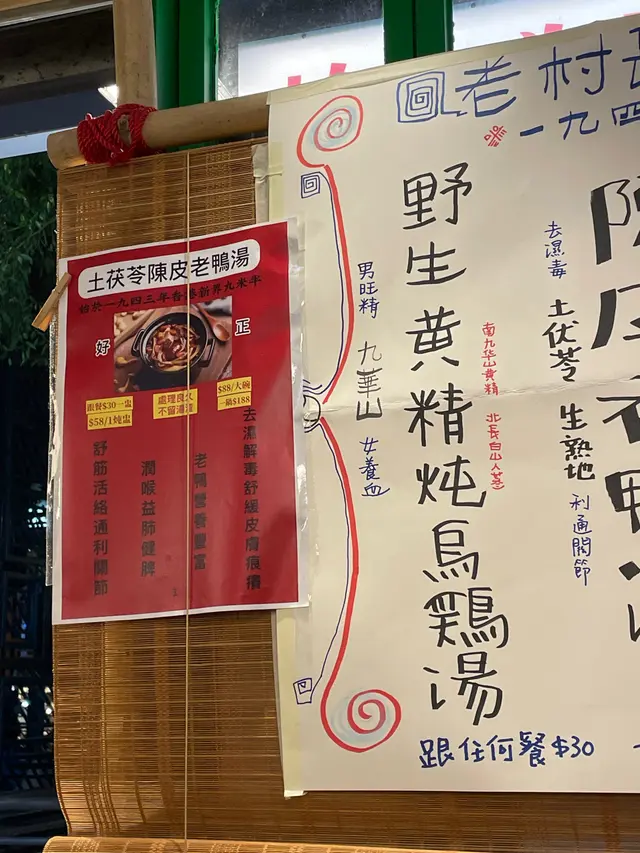 土茯苓陳皮老鴨湯
始於一九四三年香港新界九米半
好
正
跟餐$30一盅
$58/1炖盅
處理良久
$88/大碗
一鍋$188
去濕解毒舒緩皮膚痕癢
老鴨營養豐富
潤喉益肺健脾
舒筋活絡通利關節
回老村
一九四
去濕毒
土伏苓
生熟地
利通関節
南九华山黄精
北長白山人参
野生黄精炖烏鶏湯
男旺精
九華山
女養血
跟任何餐$30